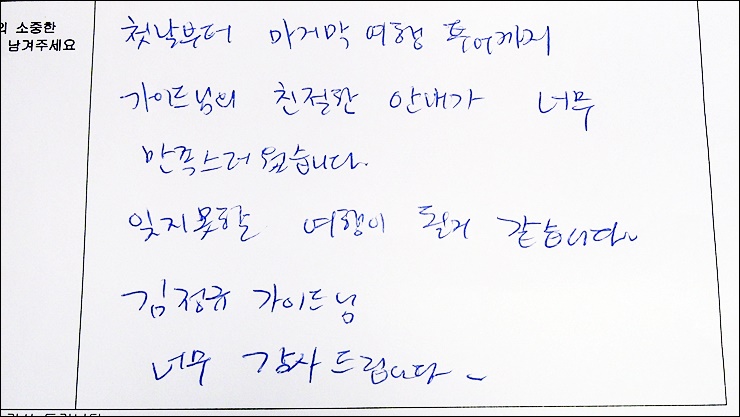 소중한
남겨주세요
첫날부터 마거막 여행 투어까지
가이드님의 친절한 안내가 너무
만족스러웠습니다.
잊지못할 여행이 될거 같습니다~
김정규 가이드님
너무 감사드립니다~